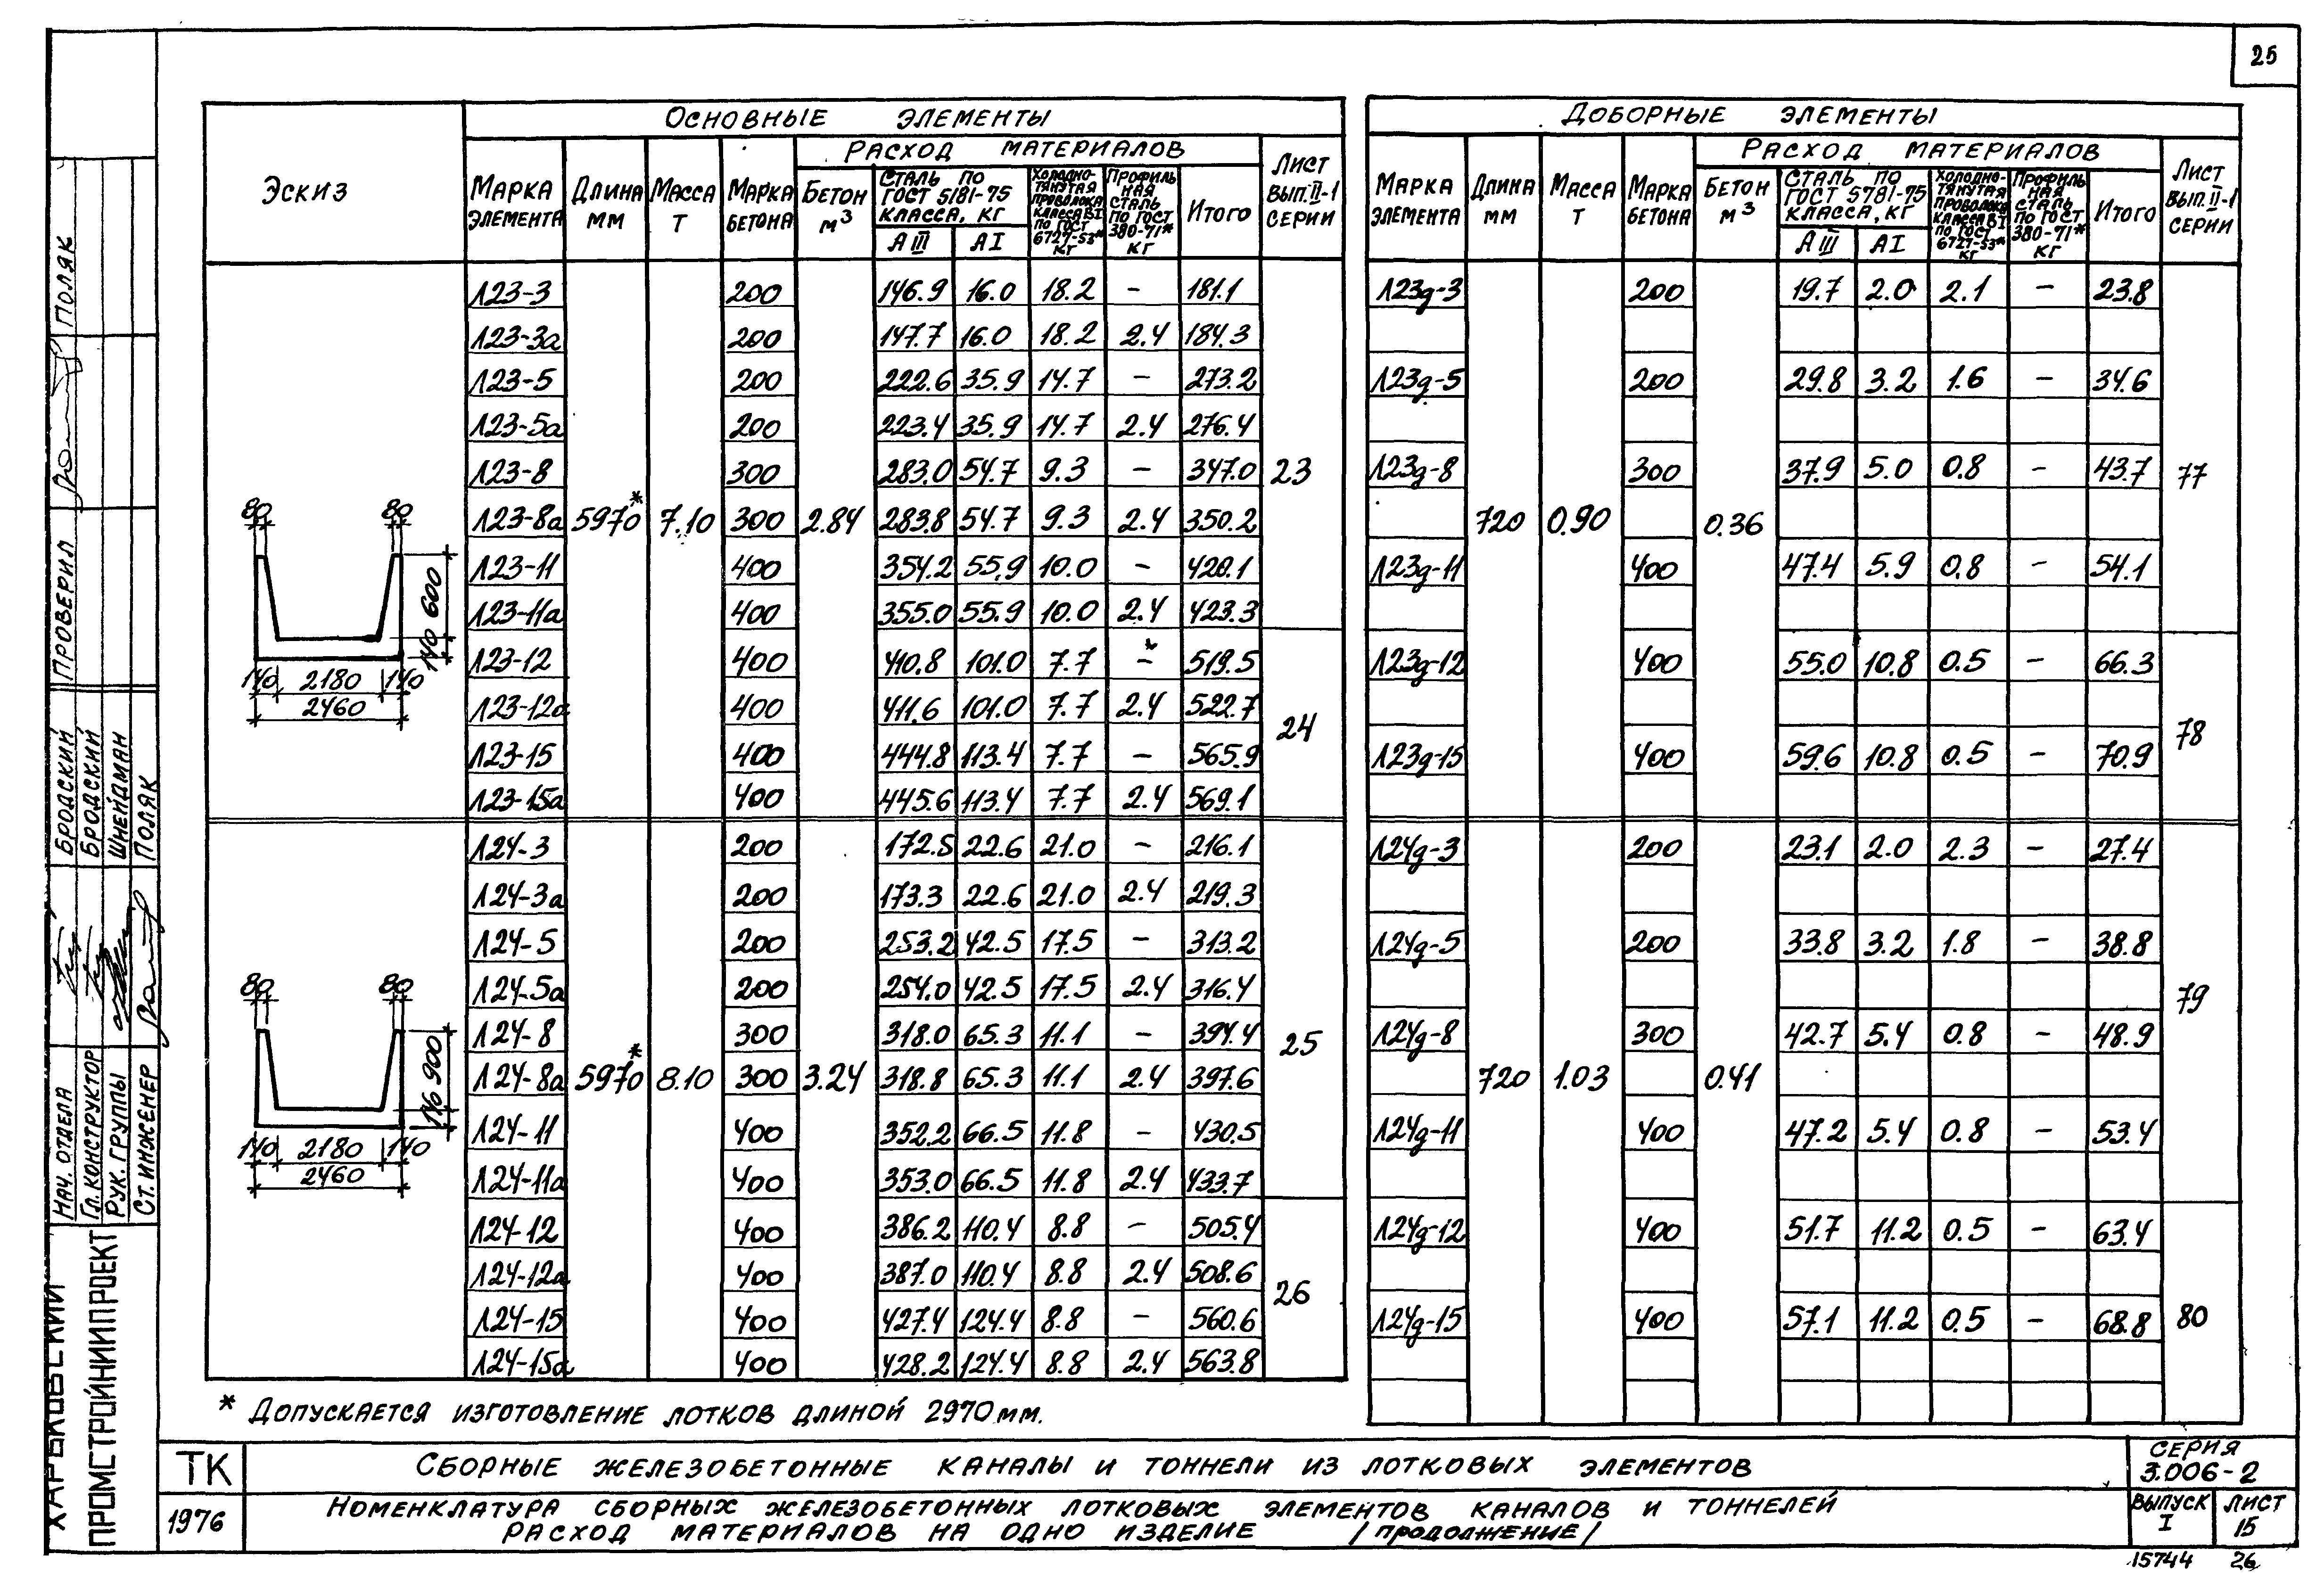 25
ОСНОВНЫЕ ЭЛЕМЕНТЫ
ЭСКИЗ
МАРКА ЭЛЕМЕНТА
ДЛИНА ММ
МАССА Т
МАРКА БЕТОНА
РАСХОД МАТЕРИАЛОВ
БЕТОН М³
СТАЛЬ ПО ГОСТ 5181-75 КЛАССА, КГ
А III
А I
ХОЛОДНО-ТЯНУТАЯ ПРОВОЛОКА КЛАССА В I ПО ГОСТ 6727-53* КГ
ПРОФИЛЬНАЯ СТАЛЬ ПО ГОСТ 380-71* КГ
ИТОГО
ЛИСТ ВЫП. II-1 СЕРИИ
Л23-3 200 146.9 16.0 18.2 – 181.1
Л23-3а 200 147.7 16.0 18.2 2.4 184.3
Л23-5 200 222.6 35.9 14.7 – 273.2
Л23-5а 200 223.4 35.9 14.7 2.4 276.4
Л23-8 300 283.0 54.7 9.3 – 347.0 23
Л23-8а 5970* 7.10 300 2.84 283.8 54.7 9.3 2.4 350.2
Л23-11 400 354.2 55.9 10.0 – 420.1
Л23-11а 400 355.0 55.9 10.0 2.4 423.3
Л23-12 400 410.8 101.0 7.7 –* 519.5
Л23-12а 400 411.6 101.0 7.7 2.4 522.7 24
Л23-15 400 444.8 113.4 7.7 – 565.9
Л23-15а 400 445.6 113.4 7.7 2.4 569.1
80 80
600
140
140 2180 140
2460
Л24-3 200 172.5 22.6 21.0 – 216.1
Л24-3а 200 173.3 22.6 21.0 2.4 219.3
Л24-5 200 253.2 42.5 17.5 – 313.2
Л24-5а 200 254.0 42.5 17.5 2.4 316.4
Л24-8 300 318.0 65.3 11.1 – 394.4 25
Л24-8а 5970* 8.10 300 3.24 318.8 65.3 11.1 2.4 397.6
Л24-11 400 352.2 66.5 11.8 – 430.5
Л24-11а 400 353.0 66.5 11.8 2.4 433.7
Л24-12 400 386.2 110.4 8.8 – 505.4
Л24-12а 400 387.0 110.4 8.8 2.4 508.6 26
Л24-15 400 427.4 124.4 8.8 – 560.6
Л24-15а 400 428.2 124.4 8.8 2.4 563.8
80 80
900
140 2180 140
2460
ДОБОРНЫЕ ЭЛЕМЕНТЫ
МАРКА ЭЛЕМЕНТА
ДЛИНА ММ
МАССА Т
МАРКА БЕТОНА
РАСХОД МАТЕРИАЛОВ
БЕТОН М³
СТАЛЬ ПО ГОСТ 5781-75 КЛАССА, КГ
А III
А I
ХОЛОДНО-ТЯНУТАЯ ПРОВОЛОКА КЛАССА В I ПО ГОСТ 6727-53* КГ
ПРОФИЛЬНАЯ СТАЛЬ ПО ГОСТ 380-71* КГ
ИТОГО
ЛИСТ ВЫП. II-1 СЕРИИ
Л23д-3 200 19.7 2.0 2.1 – 23.8
Л23д-5 200 29.8 3.2 1.6 – 34.6
Л23д-8 300 37.9 5.0 0.8 – 43.7 77
720 0.90 0.36
Л23д-11 400 47.4 5.9 0.8 – 54.1
Л23д-12 400 55.0 10.8 0.5 – 66.3
78
Л23д-15 400 59.6 10.8 0.5 – 70.9
Л24д-3 200 23.1 2.0 2.3 – 27.4
Л24д-5 200 33.8 3.2 1.8 – 38.8
79
Л24д-8 300 42.7 5.4 0.8 – 48.9
720 1.03 0.41
Л24д-11 400 47.2 5.4 0.8 – 53.4
Л24д-12 400 51.7 11.2 0.5 – 63.4
Л24д-15 400 57.1 11.2 0.5 – 68.8 80
* ДОПУСКАЕТСЯ ИЗГОТОВЛЕНИЕ ЛОТКОВ ДЛИНОЙ 2970 ММ.
ТК
1976
СБОРНЫЕ ЖЕЛЕЗОБЕТОННЫЕ КАНАЛЫ И ТОННЕЛИ ИЗ ЛОТКОВЫХ ЭЛЕМЕНТОВ
НОМЕНКЛАТУРА СБОРНЫХ ЖЕЛЕЗОБЕТОННЫХ ЛОТКОВЫХ ЭЛЕМЕНТОВ КАНАЛОВ И ТОННЕЛЕЙ
РАСХОД МАТЕРИАЛОВ НА ОДНО ИЗДЕЛИЕ /ПРОДОЛЖЕНИЕ/
СЕРИЯ
3.006-2
ВЫПУСК I
ЛИСТ 15
15744 26
ХАРЬКОВСКИЙ
ПРОМСТРОЙНИИПРОЕКТ
НАЧ. ОТДЕЛА БРОДСКИЙ
ГЛ. КОНСТРУКТОР БРОДСКИЙ
РУК. ГРУППЫ ШНЕЙДМАН
СТ. ИНЖЕНЕР ПОЛЯК
ПРОВЕРИЛ ПОЛЯК